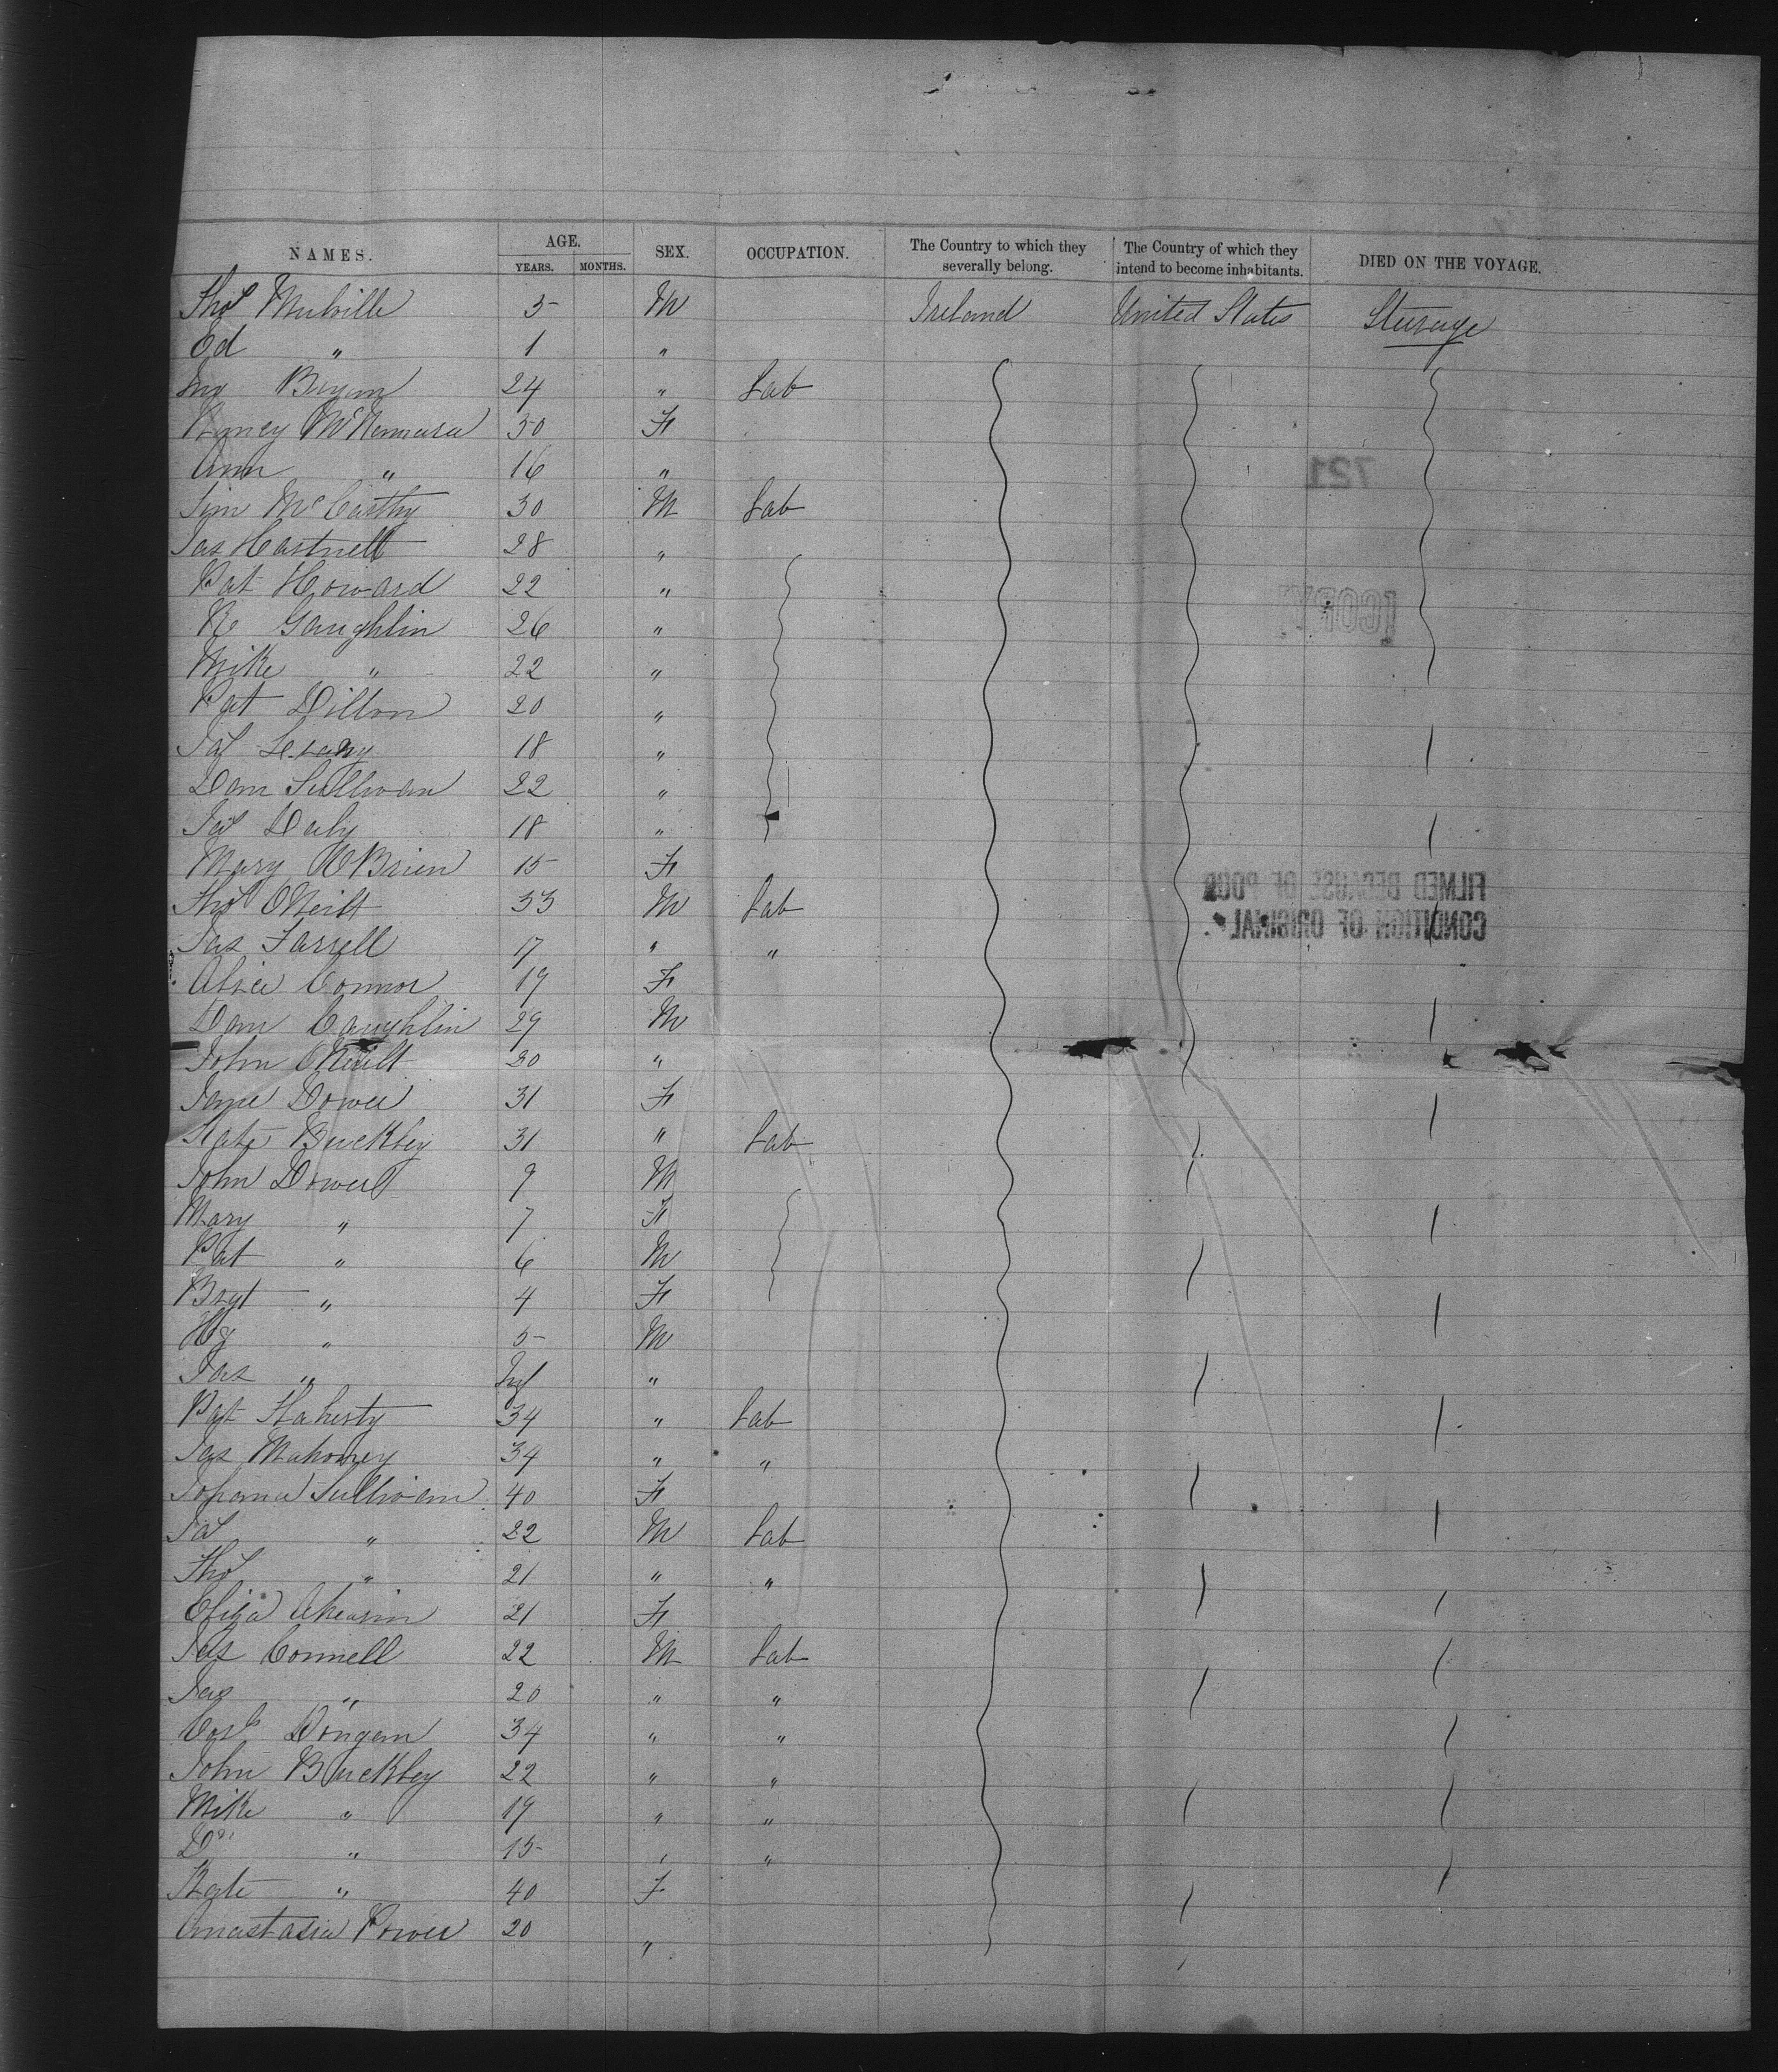 NAMES. AGE. SEX. OCCUPATION. The Country to which they severally belong. The Country of which they intend to become inhabitants. DIED ON THE VOYAGE.
YEARS. MONTHS.
Thos Mulville 5 M Ireland United States Steerage
Ed " 1 "
Jno Bryan 24 " Lab
Nancy McNamara 30 F
Ann " 16 "
Tim McCarthy 30 M Lab
Jas Hartnett 28 "
Pat Howard 22 "
R Gaughlin 26 "
Mike " 22 "
Pat Dillon 20 "
Jas 18 "
Dan Sullivan 22 "
Jas Daly 18 "
Mary O'Brien 15 F
Thos O'Neill 33 M Lab
Jas Farrell 17 " "
Alice Connor 19 F
Dan Caughlin 29 M
John O'Neill 20 "
Jane Dower 31 F
Kate Buckley 31 " Lab
John Dower 9 M
Mary " 7 F
Pat " 6 M
Brgt " 4 F
Hy " 5 M
Jas " Inf "
Pat Flaherty 34 " Lab
Jas Mahoney 34 " "
Johana Sullivan 40 F
Jas " 22 M Lab
Thos " 21 " "
Eliza Ahearin 21 F
Jas Connell 22 M Lab
Jas " 20 " "
Dongan 34 " "
John Buckley 22 " "
Mike " 19 " "
Do " 15 " "
Kate " 40 F
Anastasia Power 20 "
721
[COPY]
FILMED BECAUSE OF POOR
CONDITION OF ORIGINAL